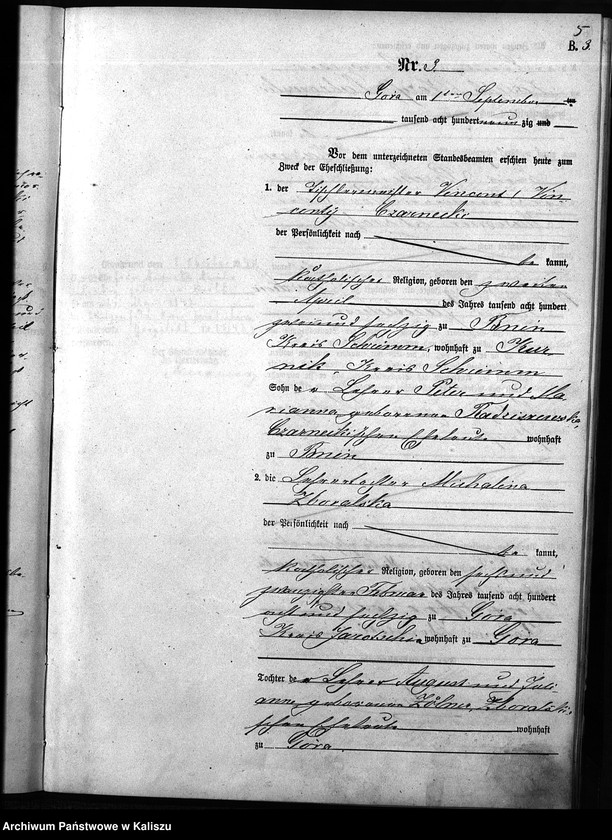 5
B. 3.
Nr. 3
Góra am 1ten September
tausend acht hundert neunzig und
Vor dem unterzeichneten Standesbeamten erschien heute zum
Zweck der Eheschließung:
1. der Tischlermeister Vincent (Vin
centy Czarnecki
der Persönlichkeit nach
be kannt,
katholischer Religion, geboren den zweiten
April des Jahres tausend acht hundert
zweiundsechzig zu Bnin
Kreis Schrimm, wohnhaft zu Kur-
nik, Kreis Schrimm
Sohn der Lehrer Peter und Ma
rianna, geborenen Radziszewska,
Czarnecki'schen Eheleute wohnhaft
zu Bnin
2. die Lehrertochter Michalina
Zboralska
der Persönlichkeit nach
be kannt,
katholischer Religion, geboren den sechsund
zwanzigsten Februar des Jahres tausend acht hundert
acht und sechzig zu Góra
Kreis Jarotschin wohnhaft zu Góra
Tochter der Lehrer August und Juli
anne geborenen Zboralski-
schen Eheleute wohnhaft
zu Góra.
Archiwum Państwowe w Kaliszu